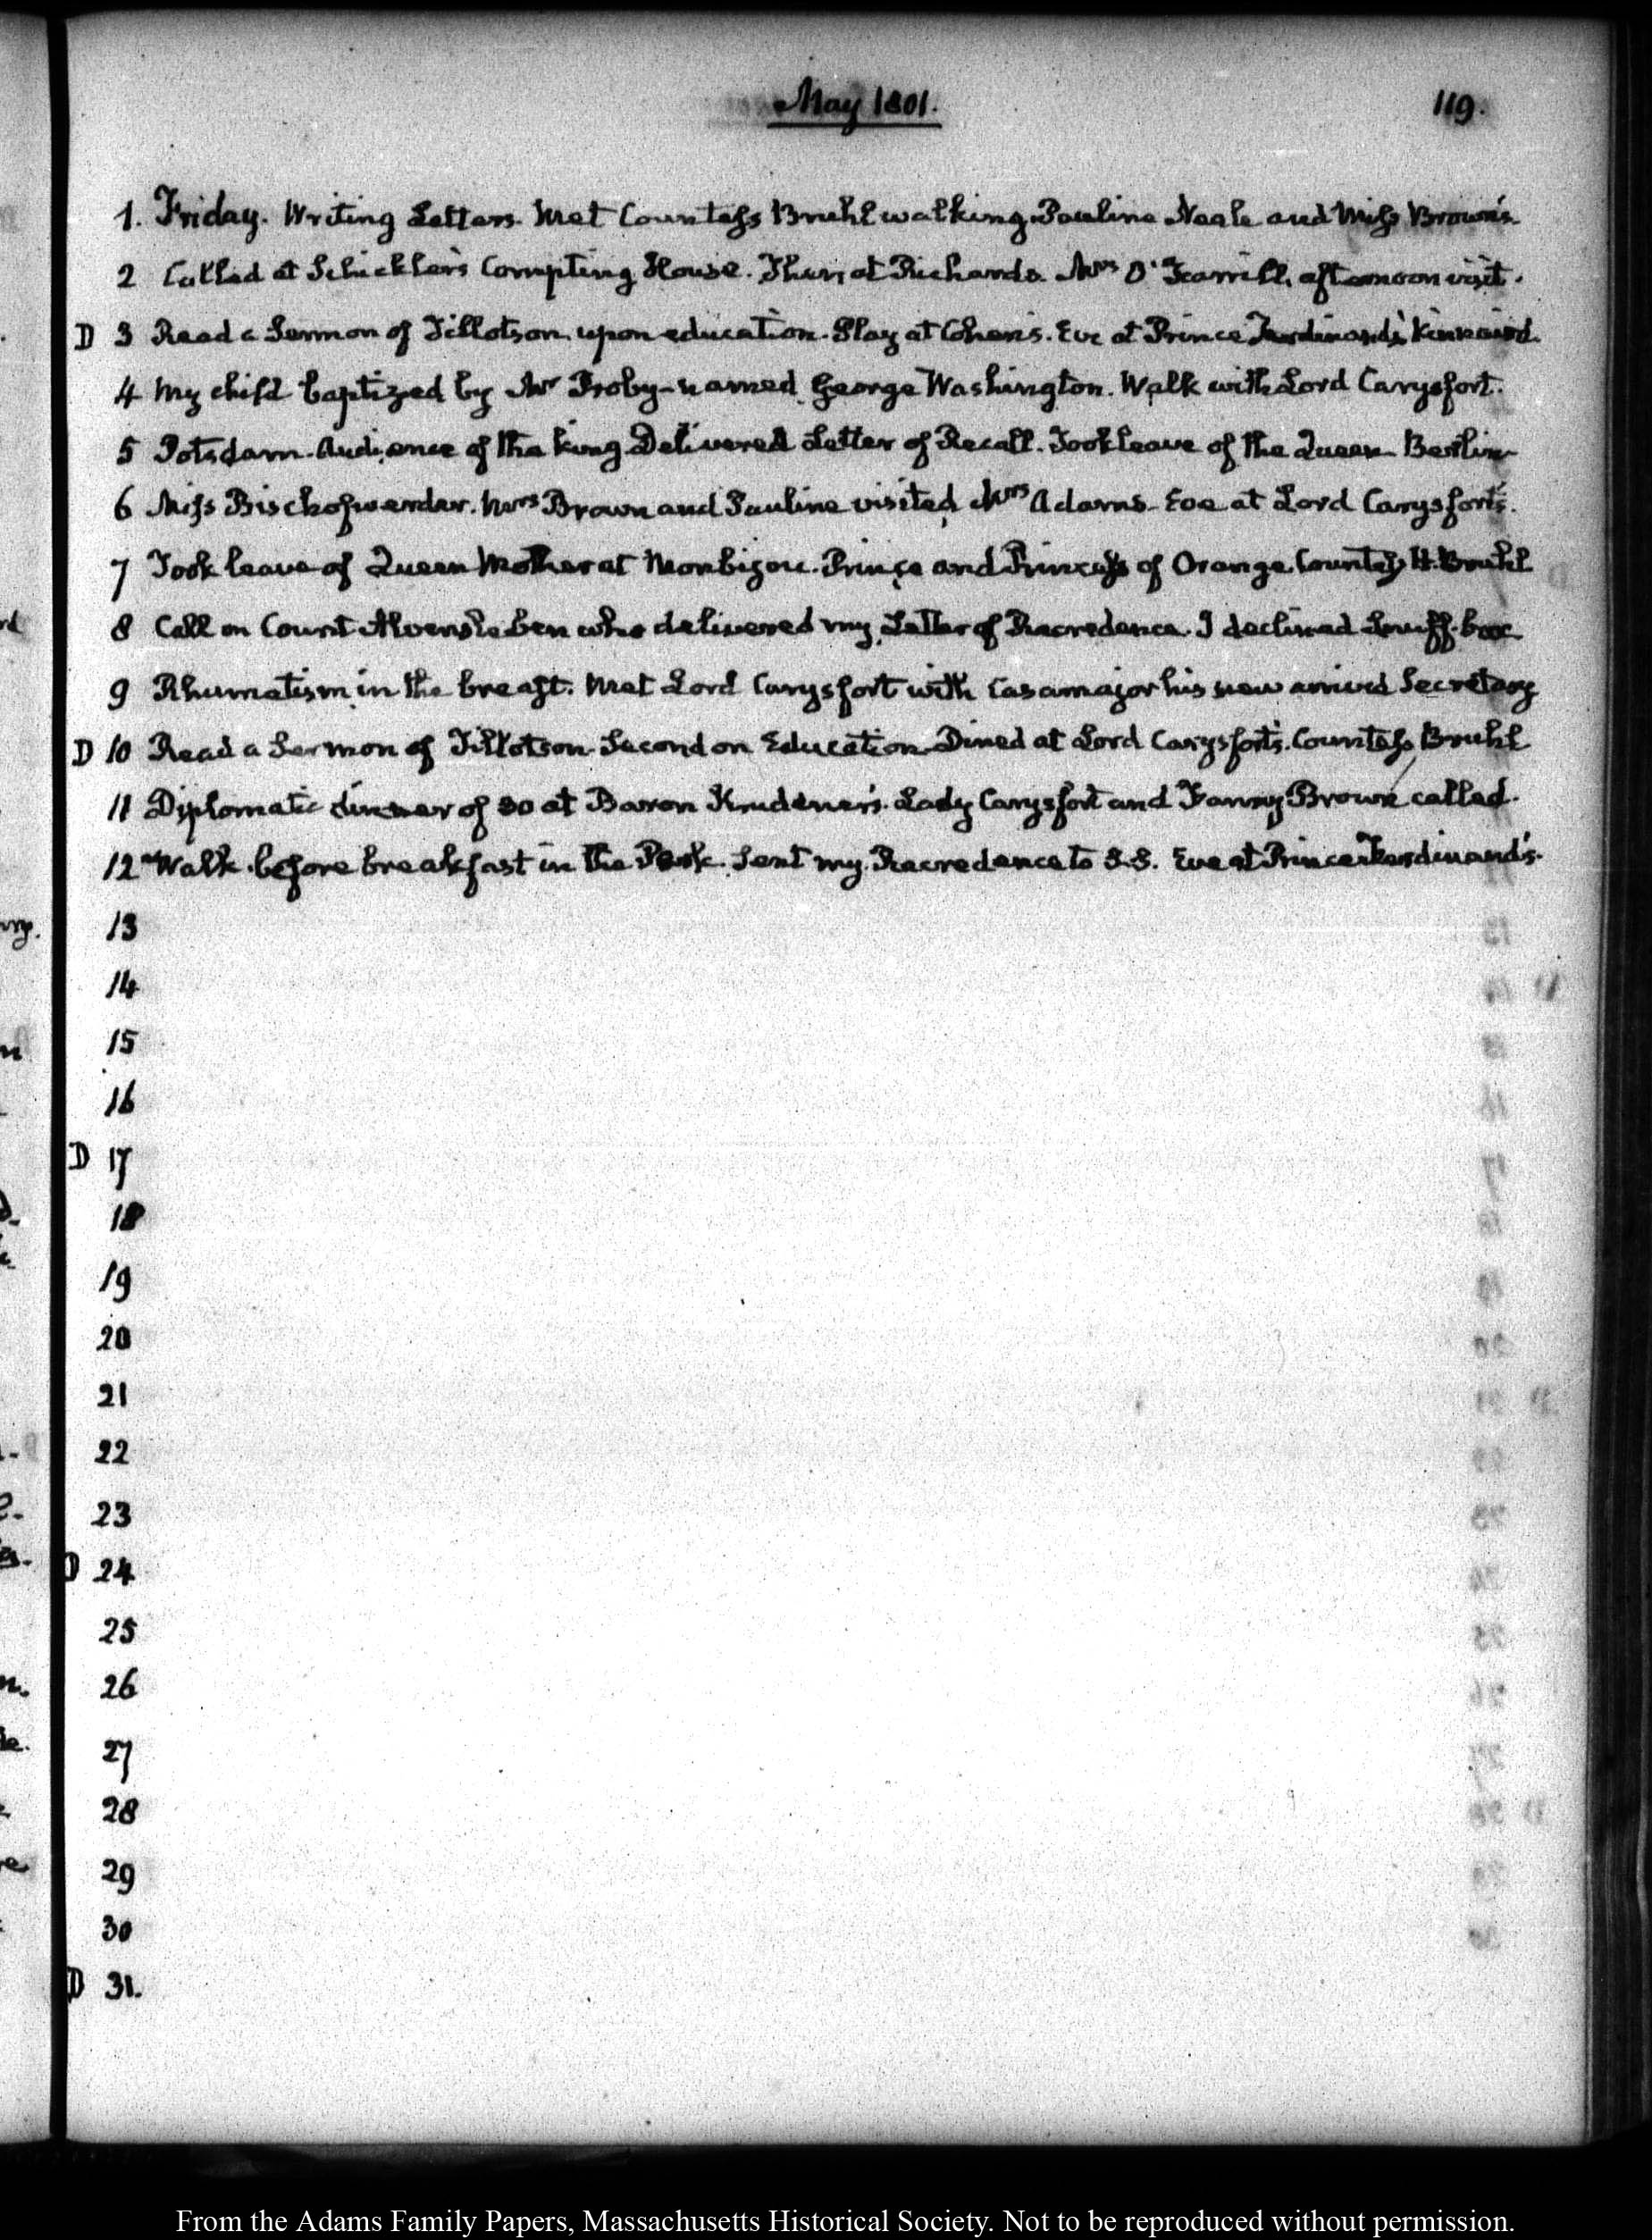 May 1801.
119.
1. Friday. Writing Letters. Met Countess Bruhl walking. Pauline Neale and Miss Brown's.
2 Called at Schickler's Compting House. Then at Richards. Mrs O'Farrill, afternoon visit.
D 3 Read a Sermon of Tillotson upon education. Play at Cohen's. Eve at Prince Ferdinand's Kinnaird.
4 My child baptized by Mr Proby-named George Washington. Walk with Lord Carysfort.
5 Potsdam. Audience of the King Delivered Letter of Recall. Took leave of the Queen Berlin
6 Miss Bischofwerder. Mrs Brown and Pauline visited Mrs Adams- Eve at Lord Carysfort's.
7 Took leave of Queen Mother at Monbijou. Prince and Princess of Orange Countess H. Bruhl
8 Call on Count Alvensleben who delivered my Letter of Recredence. I declined Snuff-box
9 Rhumatism in the breast. Met Lord Carysfort with Casamajor his new arrived Secretary
D 10 Read a Sermon of Tillotson Second on Education. Dined at Lord Carysfort's. Countess Bruhl
11 Diplomatic dinner of 30 at Baron Krudener's. Lady Carysfort and Fanny Brown called.
12 Walk before breakfast in the Park. Sent my Recredence to S.S. Eve at Prince Ferdinand's.
13
14
15
16
D 17
18
19
20
21
22
23
D 24
25
26
27
28
29
30
D 31.
From the Adams Family Papers, Massachusetts Historical Society. Not to be reproduced without permission.